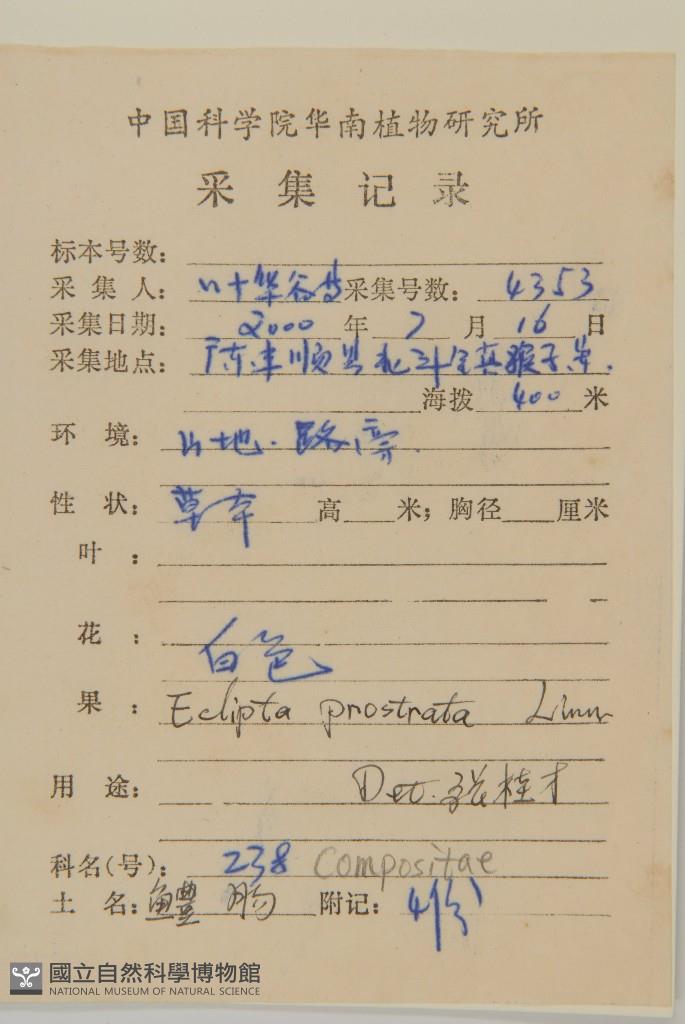 中国科学院华南植物研究所
采集记录
标本号数:
采集人: 叶华谷 采集号数: 4353
采集日期: 2000 年 7 月 16 日
采集地点: 广东丰顺县北斗
海拨 400 米
环境: 山地. 路旁.
性状: 草本 高 米; 胸径 厘米
叶:
花:
白色
果: Eclipta prostrata Linn
用途: Det. 桂才
科名(号): 238 Compositae
土名: 鱧肠 附记: 4份
國立自然科學博物館
NATIONAL MUSEUM OF NATURAL SCIENCE